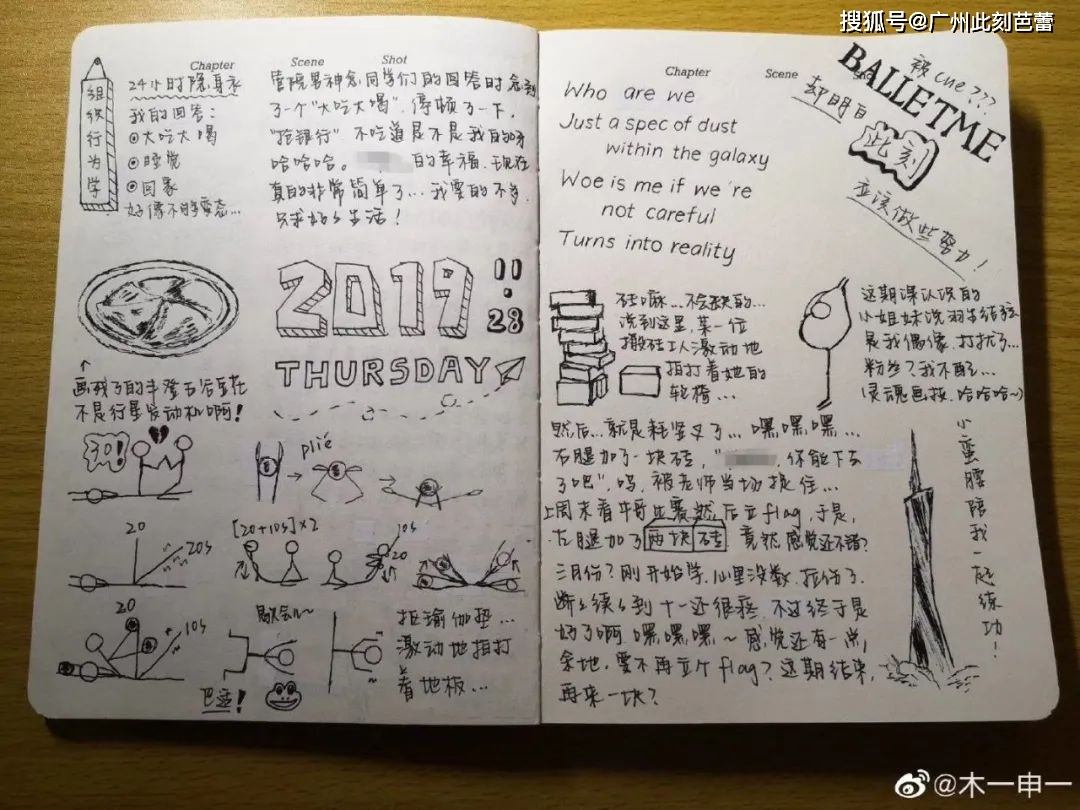 搜狐号@广州此刻芭蕾
Chapter Scene Shot
组织行为学
24小时隐身衣
我的回答：
大吃大喝
睡觉
回家
好像不够变态…
管院男神念同学们的回答时念到
了一个“大吃大喝”，停顿了一下，
“抢银行”不吃道是不是我自的呀
哈哈哈。 的幸福，现在
真的非常简单了…我要的不多，
只求好好生活！
2019 11.28
THURSDAY
画残了的丰登古后豆花
不是行星发动机啊！
30!
plié
20
20s
[20+10s]×2
10s
20
20
10s
巴塞!
抱瑜伽垫…
激动地拍打
着地板…
Chapter Scene
Who are we
Just a spec of dust
within the galaxy
Woe is me if we're
not careful
Turns into reality
被cue???
BALLETME
却明白
此刻
应该做些努力!
砖嘛…不会缺的…
说到这里，某一位
搬砖工人激动地
拍打着她的
软椅…
这期课认识的
小姐妹说羽生结弦
是我偶像，打扰了…
粉丝？我不配…
(灵魂画技，哈哈哈~)
然后…就是耗竖叉了…嘿,嘿,嘿…
右腿加了一块砖，“ ，你能下去
了吧”，呜，被老师当场捉住…
上周末看牛哥比赛，然后立flag，于是，
左腿加了两块砖 竟然感觉还不错?
三月份？刚开始学，心里没数，拉伤了.
断断续续到十一还很疼，不过终于是
好了啊，嘿,嘿,嘿,~ 感觉还有一点,
余地，要不再立个flag？这期结束,
再来一块？
小蛮腰陪我一起练功！
@木一申一